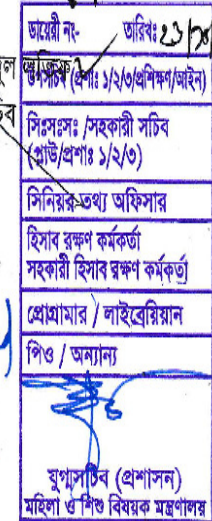 ডায়েরী নং- তারিখঃ ২৩/
উপসচিব (প্রশাঃ ১/২/৩/প্রশিক্ষণ/আইন)
সিঃসঃসঃ /সহকারী সচিব
(প্রাউ/প্রশাঃ ১/২/৩)
সিনিয়র তথ্য অফিসার
হিসাব রক্ষণ কর্মকর্তা
সহকারী হিসাব রক্ষণ কর্মকর্তা
প্রোগ্রামার / লাইব্রেরিয়ান
পিও / অন্যান্য
যুগ্মসচিব (প্রশাসন)
মহিলা ও শিশু বিষয়ক মন্ত্রণালয়